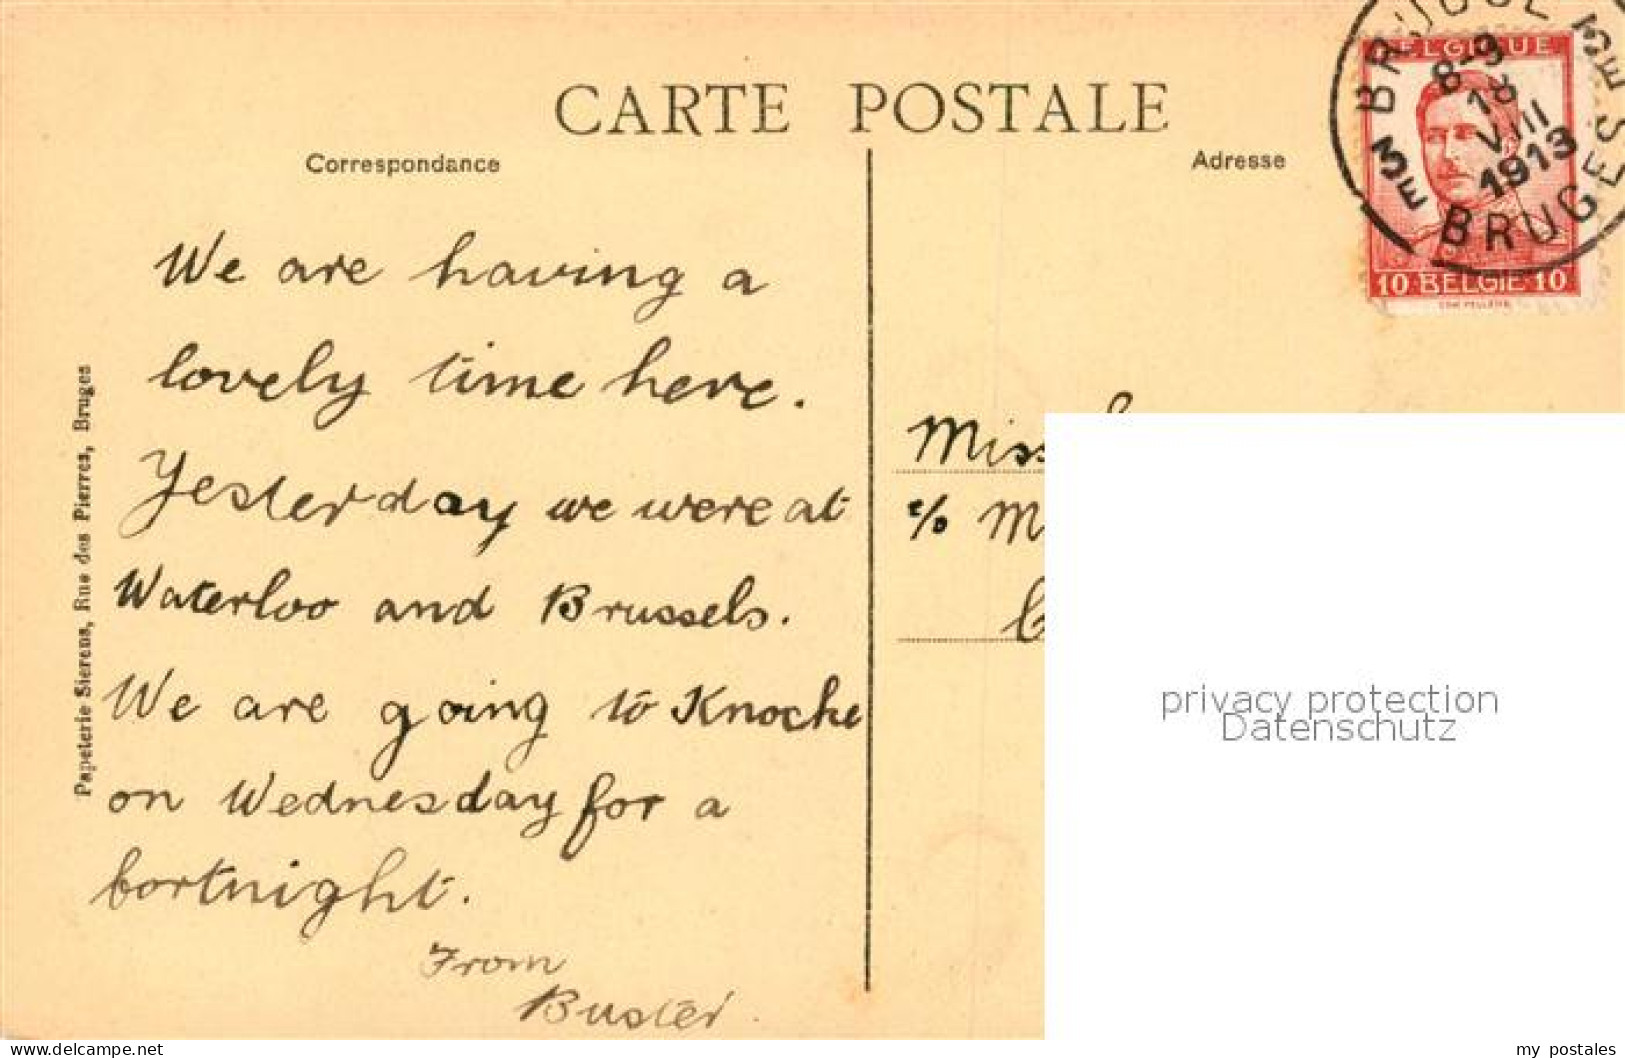 CARTE POSTALE
Correspondance
We are having a
lovely time here.
Yesterday we were at
Waterloo and Brussels.
We are going to Knocke
on Wednesday for a
fortnight.
From
Buster.
Papeterie Sierens, Rue des Pierres, Bruges
Adresse
BRUGGE 3E
8-9
18
VIII
1913
3E BRUGES
BELGIQUE
10 BELGIE 10
Miss
c/o M
privacy protection
Datenschutz
Delcampe.net
my_postales